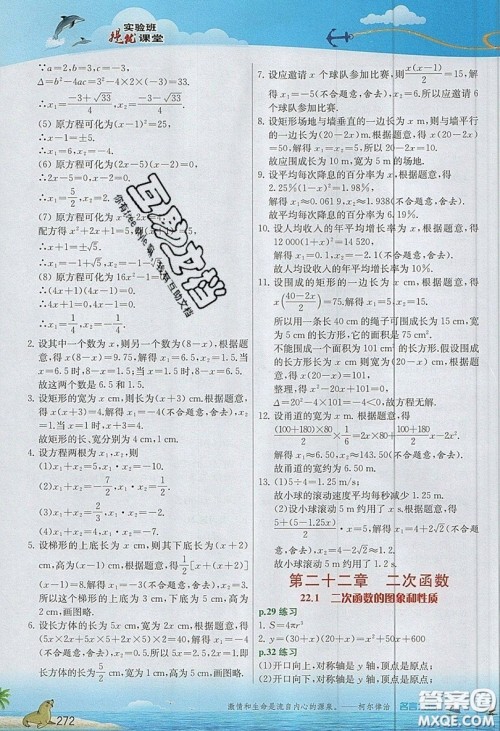 实验班
提优课堂
∵a=2,b=3,c=-3,
Δ=b²-4ac=3²-4×2×(-3)=33.
∴x=(-3±√33)/4.
∴x₁=(-3+√33)/4,x₂=(-3-√33)/4.
(5) 原方程可化为(x-1)²=25,
∴x-1=±5.
∴x₁=6,x₂=-4.
(6) 原方程可化为(2x-5)(x-2)=0.
∴2x-5=0,x-2=0.
∴x₁=5/2,x₂=2.
(7) 原方程可化为
配方得(x+1)²=5.
∴x+1=±√5.
∴x₁=-1+√5,x₂=-1-√5.
(8) 原方程可化为16x²-1=
∴(4x+1)(4x-1)=0.
∴x₁=-1/4,x₂=1/4.
2. 设其中一个数为x,则另一个数为(8-x),根据题
意,得x(8-x)=9.75,解得x₁=6.5,x₂=1.5.当
x=6.5时,8-x=1.5;当x=1.5时,8-x=6.5.
故这两个数是6.5和1.5.
3. 设矩形的宽为x cm,则长为(x+3)cm.根据题意,
得x(x+3)=4.解得x₁=-4(不合题意,舍去),x₂
=1.当x=1时,x+3=4.
故矩形的长、宽分别为4 cm,1 cm.
4. 设方程两根为x₁,x₂,则
(1)x₁+x₂=5,x₁·x₂=-10.
(2)x₁+x₂=-7/2,x₁·x₂=1/2.
(3)x₁+x₂=1/3,x₁·x₂=-2.
(4)x₁+x₂=5,x₁·x₂=-7.
5. 设梯形的上底长为x cm,则其下底长为(x+2)
cm,高为(x-1)cm.根据题意,得1/2[x+(x+2)]
(x-1)=8.解得x₁=3,x₂=-3(不合题意,舍去).
故这个梯形的上底长为3 cm,下底长为5 cm,高为
2 cm.画图略.
6. 设长方体的高为5x cm,宽为2x cm.根据题意,得
(5x×2x+5x×5x+2x×5x)×2+(5x+5x+
2x)×4=90x²+48x=138.解得x₁=1,x₂<0,舍去.
即该长方体的长为5 cm,宽为2 cm,高为5 cm.
画图略.
7. 设应邀请x个球队参加比赛,则x(x-1)/2=15,解
得x₁=-5(不合题意,舍去),x₂=6.故应邀请6
个球队参加比赛.
8. 设矩形场地与墙垂直的一边长为x m,则与墙平行
的一边长为(20-2x)m.根据题意,得x(20-2x)
=50.解得x₁=x₂=5.则20-2x=10.
故应围成长为10 m,宽为5 m的场地.
9. 设平均每次降息的百分率为x,根据题意,得
2.25%(1-x)²=1.98%.
解得x₁≈0.061 9,x₂≈1.94(不合题意,舍去).
故平均每次降息的百分率约为6.19%.
10. 设人均收入的年平均增长率为x,根据题意,得
12 000(1+x)²=14 520.
解得x₁=0.1,x₂=-2.1(不合题意,舍去).
故人均收入的年平均增长率为10%.
11. 设围成的长方形的一边长为x cm.根据题意,得
x((40-2x)/2)=75.解得x₁=5,x₂=15.
所以用一条长40 cm的绳子可围成长为15 cm、
宽为5 cm的面积为75 cm²的长方形.
不能围成一个面积为101 cm²的长方形.假设可
以围成,则x((40-2x)/2)=101,
整理,得x²-20x+101=0.
∵Δ=(-20)²-4×101=-4<0,故方程无解.
画图略.
12. 设甬道的宽为x m.根据题意,得
(100+180)×80/2×1/6=2x×80+(100+180)/2·x-2x².
解得x₁≈6.50,x₂≈143.50(不合题意,舍去).
故甬道的宽约为6.50 m.
13. (1)5÷4=1.25(m/s).
故小球的滚动速度平均每秒减少1.25 m.
(2)设小球滚动到5 m约用了x s,根据题意,得
[5+(5-1.25x)]/2·x=5.解得x₁=4+2√2(不合题意,
舍去),x₂=4-2√2.
故小球滚动到5 m约用了(4-2√2)s.
第二十二章 二次函数
22.1 二次函数的图象和性质
p.29 练习
1. S=4πr²
2. y=(30+x)(20+x)=x²+50x+600
p.32 练习
(1)开口向上,对称轴是y轴,顶点是原点;
(2)开口向下,对称轴是y轴,顶点是原点;
互助文档
272
激情和生命是流自内心的源泉。——柯尔律治
答案圈
MXQE.COM